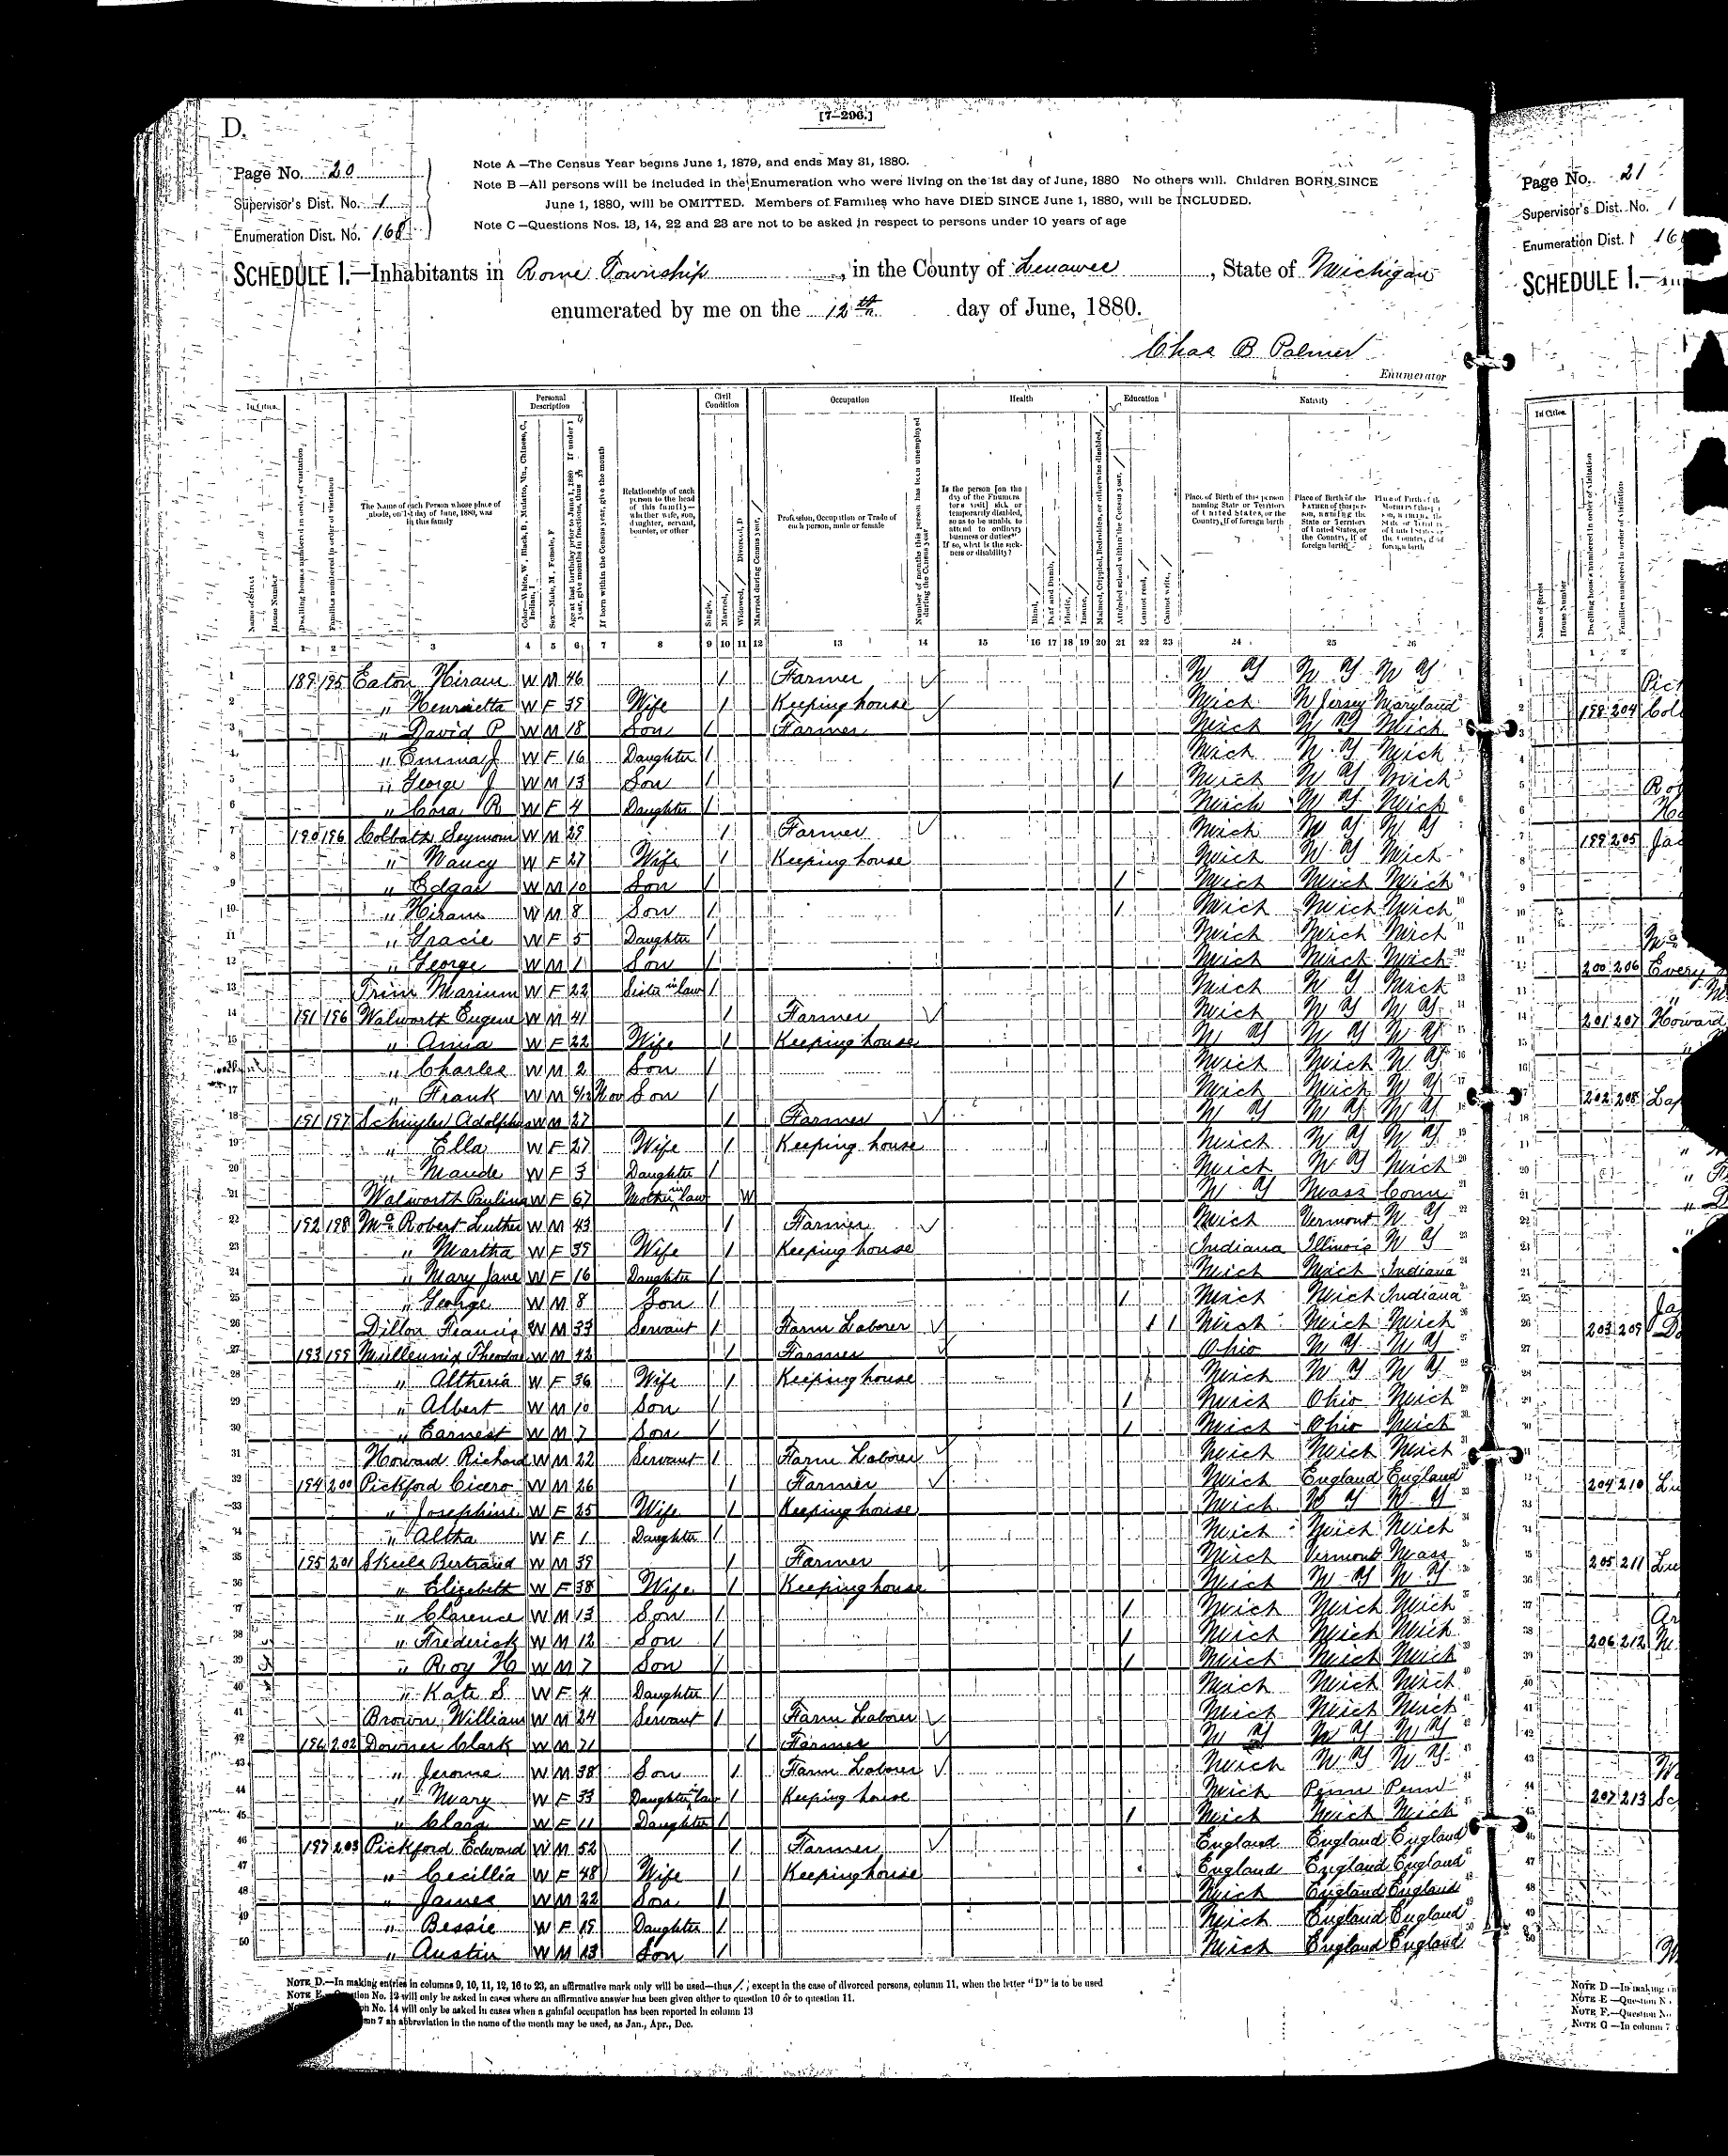 [7-296.]
D.
Page No. 20
Supervisor's Dist. No. 1
Enumeration Dist. No. 168
Note A —The Census Year begins June 1, 1879, and ends May 31, 1880.
Note B —All persons will be included in the Enumeration who were living on the 1st day of June, 1880 No others will. Children BORN SINCE
June 1, 1880, will be OMITTED. Members of Families who have DIED SINCE June 1, 1880, will be INCLUDED.
Note C —Questions Nos. 13, 14, 22 and 23 are not to be asked in respect to persons under 10 years of age
SCHEDULE 1.—Inhabitants in Rome Township, in the County of Lenawee, State of Michigan
enumerated by me on the 12th day of June, 1880.
Chas B Palmer
Enumerator
Personal Description Civil Condition Occupation Health Education Nativity
1 2 3 4 5 6 7 8 9 10 11 12 13 14 15 16 17 18 19 20 21 22 23 24 25 26
1 189 195 Eaton Hiram W M 46 / Farmer N Y N Y N Y
2 " Henrietta W F 39 Wife / Keeping house Mich N Jersey Maryland
3 " David P W M 18 Son / Farmer Mich N Y Mich
4 " Emma J W F 16 Daughter / Mich N Y Mich
5 " George J W M 13 Son / / Mich N Y Mich
6 " Cora R W F 4 Daughter / Mich N Y Mich
7 190 196 Colbath Seymour W M 29 / Farmer Mich N Y N Y
8 " Nancy W F 27 Wife / Keeping house Mich N Y Mich
9 " Edgar W M 10 Son / / Mich Mich Mich
10 " Hiram W M 8 Son / / Mich Mich Mich
11 " Gracie W F 5 Daughter / Mich Mich Mich
12 " George W M 1 Son / Mich Mich Mich
13 Trim Marium W F 22 Sister in law / Mich N Y Mich
14 191 196 Walworth Eugene W M 41 / Farmer Mich N Y N Y
15 " Anna W F 22 Wife / Keeping house N Y N Y N Y
16 " Charles W M 2 Son / Mich Mich N Y
17 " Frank W M 6/12 Nov Son / Mich Mich N Y
18 191 197 Schuyler Adolphus W M 27 / Farmer N Y N Y N Y
19 " Ella W F 27 Wife / Keeping house Mich N Y N Y
20 " Maude W F 3 Daughter / Mich N Y Mich
21 Walworth Paulina W F 67 Mother in law W N Y Mass Conn
22 192 198 Mc Robert Luther W M 43 / Farmer Mich Vermont N Y
23 " Martha W F 39 Wife / Keeping house Indiana Illinois N Y
24 " Mary Jane W F 16 Daughter / Mich Mich Indiana
25 " George W M 8 Son / / Mich Mich Indiana
26 Dillon Francis W M 33 Servant / Farm Laborer / / Mich Mich Mich
27 193 199 Mullennix Theodore W M 42 / Farmer Ohio N Y N Y
28 " Altheria W F 36 Wife / Keeping house Mich N Y N Y
29 " Albert W M 10 Son / / Mich Ohio Mich
30 " Earnest W M 7 Son / / Mich Ohio Mich
31 Howard Richard W M 22 Servant / Farm Laborer Mich Mich Mich
32 194 200 Pickford Cicero W M 26 / Farmer Mich England England
33 " Josephine W F 25 Wife / Keeping house Mich N Y N Y
34 " Altha W F 1 Daughter / Mich Mich Mich
35 195 201 Skeels Bertrand W M 39 / Farmer Mich Vermont Mass
36 " Elizabeth W F 38 Wife / Keeping house Mich N Y N Y
37 " Clarence W M 13 Son / / Mich Mich Mich
38 " Frederick W M 12 Son / / Mich Mich Mich
39 " Roy H W M 7 Son / / Mich Mich Mich
40 " Kate S W F 4 Daughter / Mich Mich Mich
41 Brown William W M 24 Servant / Farm Laborer Mich Mich Mich
42 196 202 Downer Clark W M 71 / Farmer N Y N Y N Y
43 " Jerome W M 38 Son / Farm Laborer Mich N Y N Y
44 " Mary W F 33 Daughter in law / Keeping house Mich Penn Penn
45 " Clara W F 11 Daughter / / Mich Mich Mich
46 197 203 Pickford Edward W M 52 / Farmer England England England
47 " Cecillia W F 48 Wife / Keeping house England England England
48 " James W M 22 Son / Mich England England
49 " Bessie W F 19 Daughter / Mich England England
50 " Austin W M 13 Son / Mich England England
NOTE D.—In making entries in columns 9, 10, 11, 12, 16 to 23, an affirmative mark only will be used—thus /, except in the case of divorced persons, column 11, when the letter "D" is to be used
No. 12 will only be asked in cases where an affirmative answer has been given either to question 10 or to question 11.
No. 14 will only be asked in cases when a gainful occupation has been reported in column 13
7 an abbreviation in the name of the month may be used, as Jan., Apr., Dec.
Page No. 21
Supervisor's Dist. No. 1
Enumeration Dist.
SCHEDULE 1.—
198 204
199 205
200 206 Every
201 207 Howard
202 208
203 209
204 210
205 211
206 212
207 213
NOTE D —In making
NOTE E —Question
NOTE F.—Question
NOTE G —In column 7